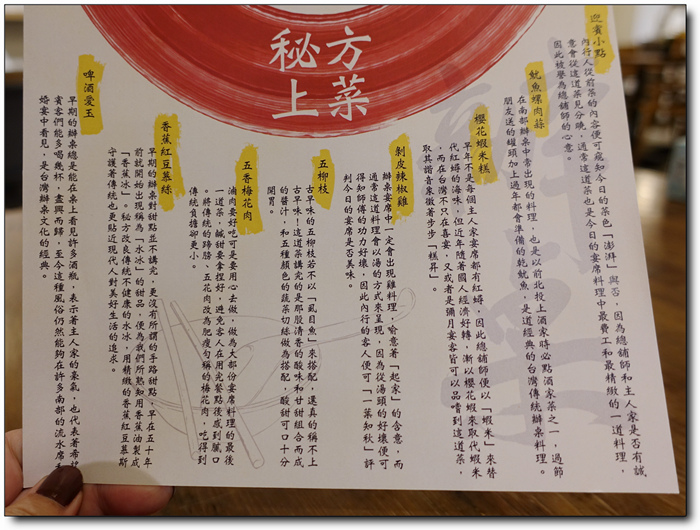 秘方
上菜
迎賓小點
內行人從前菜的內容便可窺知今日的茶色「澎湃」與否，因為總鋪師和主人家是否有誠
意會從這道菜見分曉，通常這道菜也是今日的宴席料理中最費工和最精緻的一道料理，
因此被譽為總鋪師的心意。
魷魚螺肉蒜
在南部辦桌中常出現的料理，也是以前北投上酒家時必點酒家菜之一，過節
朋友送的罐頭加上過年都會準備的乾魷魚，是道經典的台灣傳統辦桌料理。
櫻花蝦米糕
早年不是每個主人家宴席都有紅蟳，因此總鋪師便以「蝦米」來替
代紅蟳的海味，但近年隨著國人經濟好轉，漸以櫻花蝦來取代蝦米
，而在台灣不只在喜宴，又或者是彌月宴客皆可以品嚐到這道菜，
取其諧音象徵著步步「糕昇」。
剝皮辣椒雞
辦桌宴席中一定會出現雞料理，喻意著「起家」的含意，而
通常這道料理會以湯的方式來呈現，因為從湯頭的好壞便可
得知師傅的功力好壞，因此內行的客人便可「一葉知秋」評
判今日的宴席是否美味。
五柳枝
古早味的五柳枝若不以「虱目魚」來搭配，還真的稱不上
古早味！這道菜講究的是那股清香的酸味和甘甜組合而成
的醬汁，和五種顏色的蔬菜切絲做為搭配，酸甜可口十分
開胃。
五香梅花肉
滷肉要好吃可是要用心去做，做為大部份宴席料理的最後
一道菜，鹹甜要拿捏好，避免客人在用完餐點後感到膩口
。將傳統的蹄膀、五花肉改為肥瘦勻稱的梅花肉，吃得到
傳統負擔卻更小。
香蕉紅豆慕絲
早期的辦桌對甜點並不講究，更沒有所謂的手路甜點，早在五十年
前就開始出現稱為「水冰」的甜品，便為我們所熟知用香蕉油製成
「香蕉冰」。秘方改良傳統不健康的水冰，用精緻的香蕉紅豆慕斯
守護著傳統也更貼近現代人對美好生活的追求。
啤酒愛玉
早期的辦桌總是能在桌上看見許多酒瓶，表示著主人家的豪氣，也代表著希望
賓客們能多喝幾杯，盡興而歸，至今這種風俗仍然能夠在許多南部的流水席和
婚宴中看見，是台灣辦桌文化的經典。